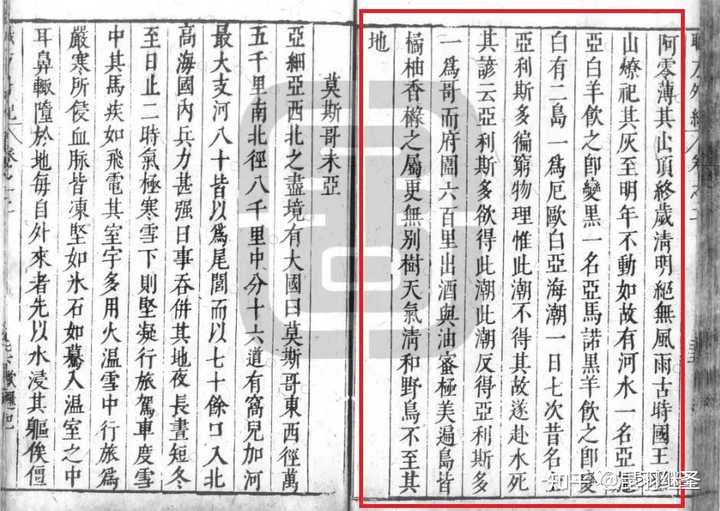 阿零薄其山頂終歲清明絕無風雨古時國王
山燎祀其灰至明年不動如故有河水一名亞
亞白羊飲之即變黑一名亞馬諾黑羊飲之即變
白有二島一爲厄歐白亞海潮一日七次昔名
亞利斯多徧窮物理惟此潮不得其故遂赴水死
其諺云亞利斯多欲得此潮此潮反得亞利斯多
一爲哥而府圍六百里出酒與油蜜極美遍島皆
橘柚香櫞之屬更無别樹天氣清和野鳥不至其
地
莫斯哥未亞
亞細亞西北之盡境有大國曰莫斯哥東西徑萬
五千里南北徑八千里中分十六道有窩兒加河
最大支河八十皆以爲尾閭而以七十餘口入北
高海國內兵力甚强日事吞併其地夜長晝短冬
至日止二時氣極寒雪下則堅凝行旅駕車度雪
中其馬疾如飛電其室宇多用火溫雪中行旅爲
嚴寒所侵血脈皆凍堅如氷石如驀入溫室之中
耳鼻輙墮於地每自外來者先以水浸其軀俟僵
知乎 @晨羽继圣